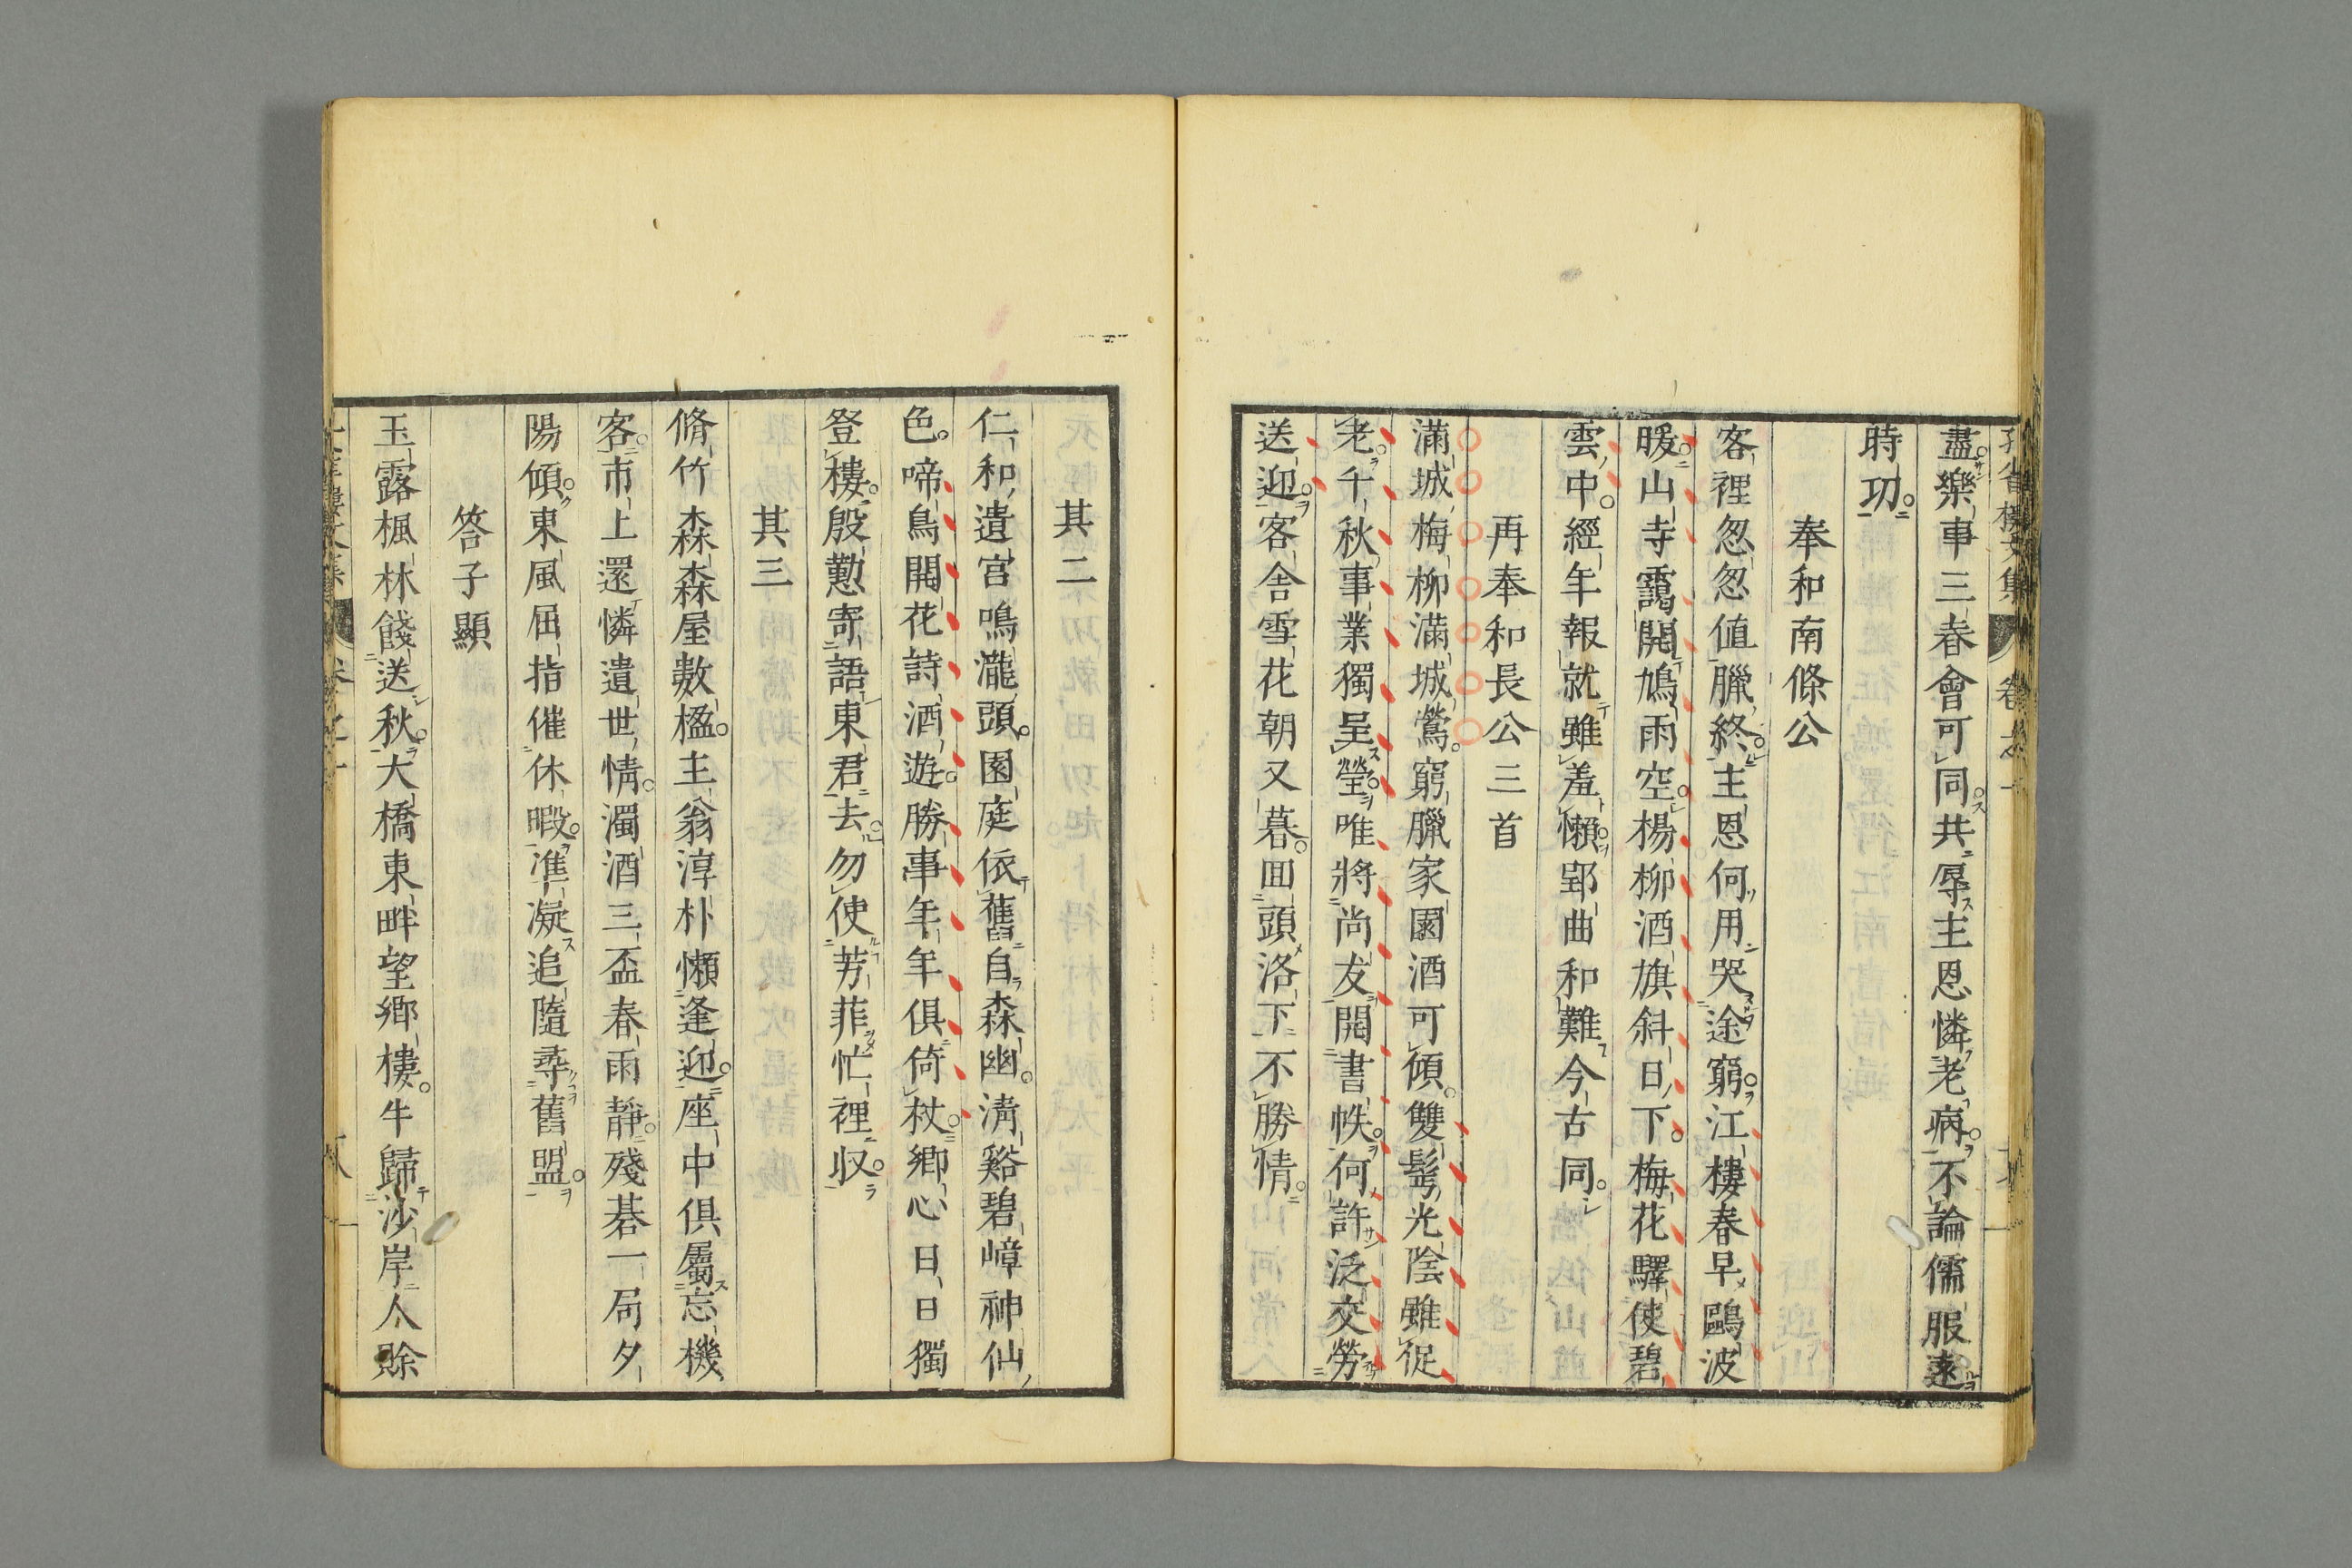 盡樂事三春會可同共辱主恩憐老病不論儒服遠
時功
奉和南條公
客裡怱怱値臘終主恩何用哭途窮江樓春早鷗波
暖山寺靄開鳩雨空楊柳酒旗斜日下梅花驛使碧
雲中經年報就雖羞懶郢曲和難今古同
再奉和長公三首
滿城梅柳滿城鶯窮臘家園酒可傾雙髩光陰雖促
老千秋事業獨呈瑩唯將尚友開書帙何許泛交勞
送迎客舍雪花朝又暮回頭洛下不勝情
其二
仁和遺宮鳴瀧頭園庭依舊自森幽淸谿碧嶂神仙
色啼鳥開花詩酒遊勝事年年俱倚杖鄉心日日獨
登樓殷懃寄語東君去勿使芳菲忙裡収
其三
脩竹森森屋數楹主翁淳朴懶逢迎座中俱屬忘機
客市上還憐遺世情濁酒三盃春雨靜殘碁一局夕
陽傾東風屈指催休暇準凝追隨尋舊盟
答子顯
玉露楓林餞送秋大橋東畔望鄉樓牛歸沙岸人賖